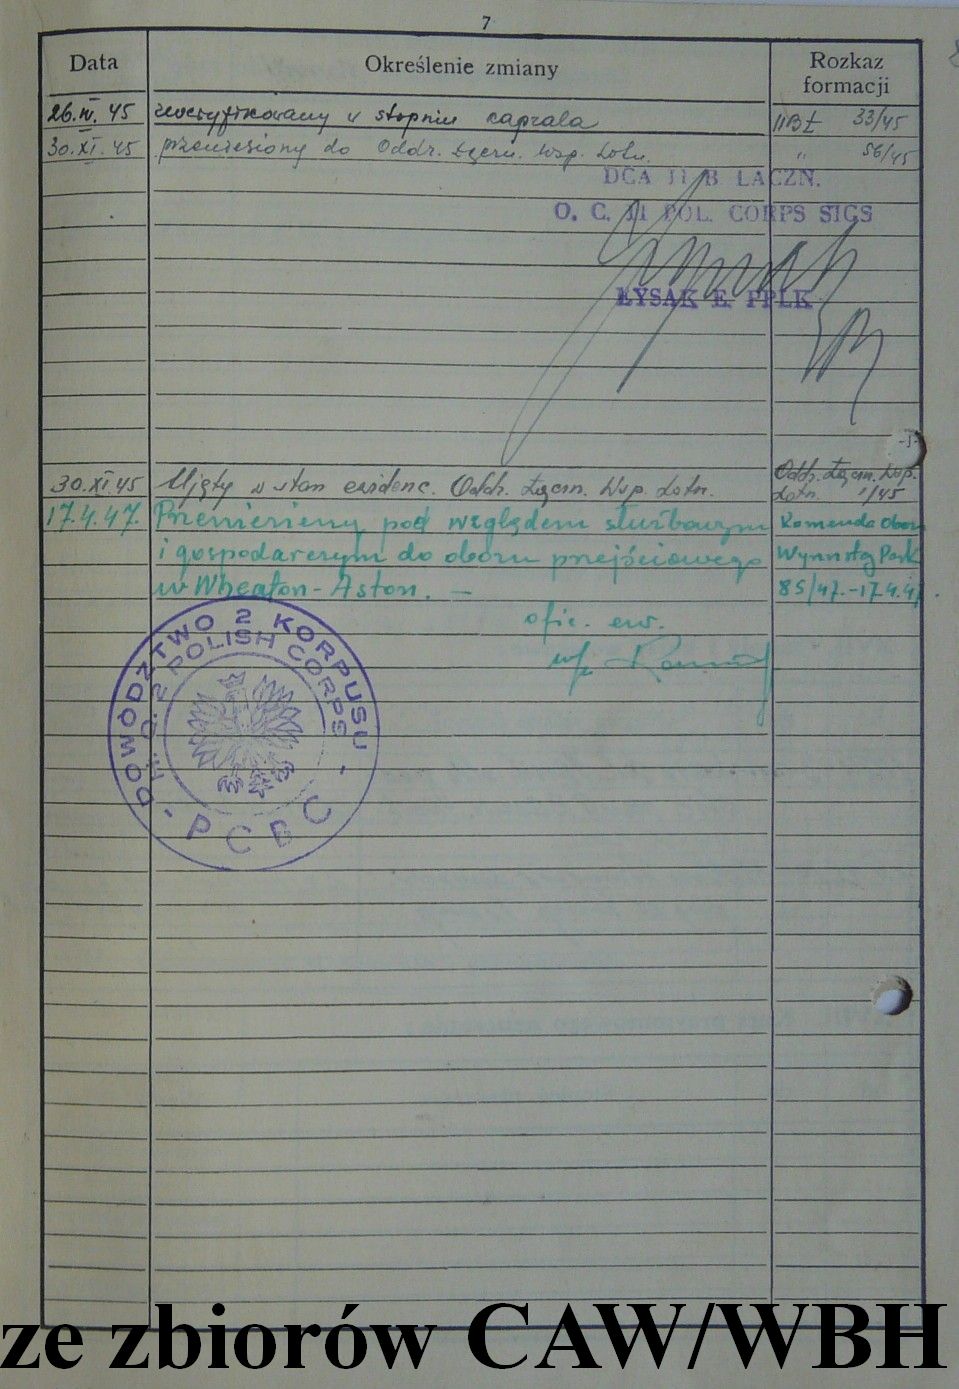 7
Data Określenie zmiany Rozkaz formacji
26.IV.45 zweryfikowany w stopniu kaprala 11Bł 33/45
30.XI.45 przeniesiony do Oddz. Łączn. Wsp. Lotn. " 56/45
DCA 11 B ŁĄCZN.
O. C. 11 POL. CORPS SIGS
ŁYSAK E. PPŁK
30.XI.45 Ujęty w stan ewidenc. Oddz. Łączn. Wsp. Lotn. Oddz. Łączn. Wsp. Lotn. 1/45
17.4.47. Przeniesiony pod względem służbowym Komenda Obozu
i gospodarczym do obozu przejściowego Wynnstay Park
w Wheaton-Aston. — 85/47.-17.4.47.
ofic. ew.
DOWÓDZTWO 2 KORPUSU
H.Q. 2 POLISH CORPS
- P C B C -
ze zbiorów CAW/WBH